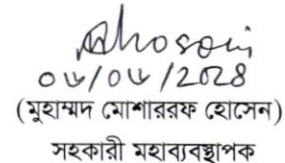 ০৬/০৬/২০২৪
(মুহাম্মদ মোশাররফ হোসেন)
সহকারী মহাব্যবস্থাপক